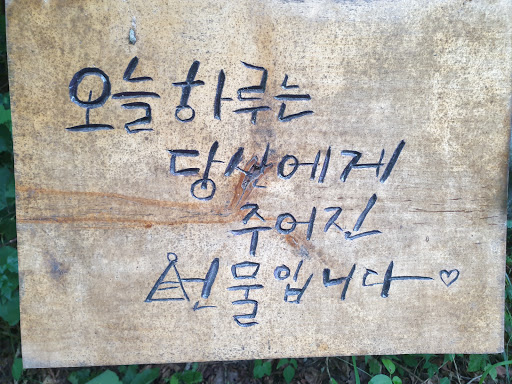 오늘 하루는
당신에게
주어진
선물입니다 ♡